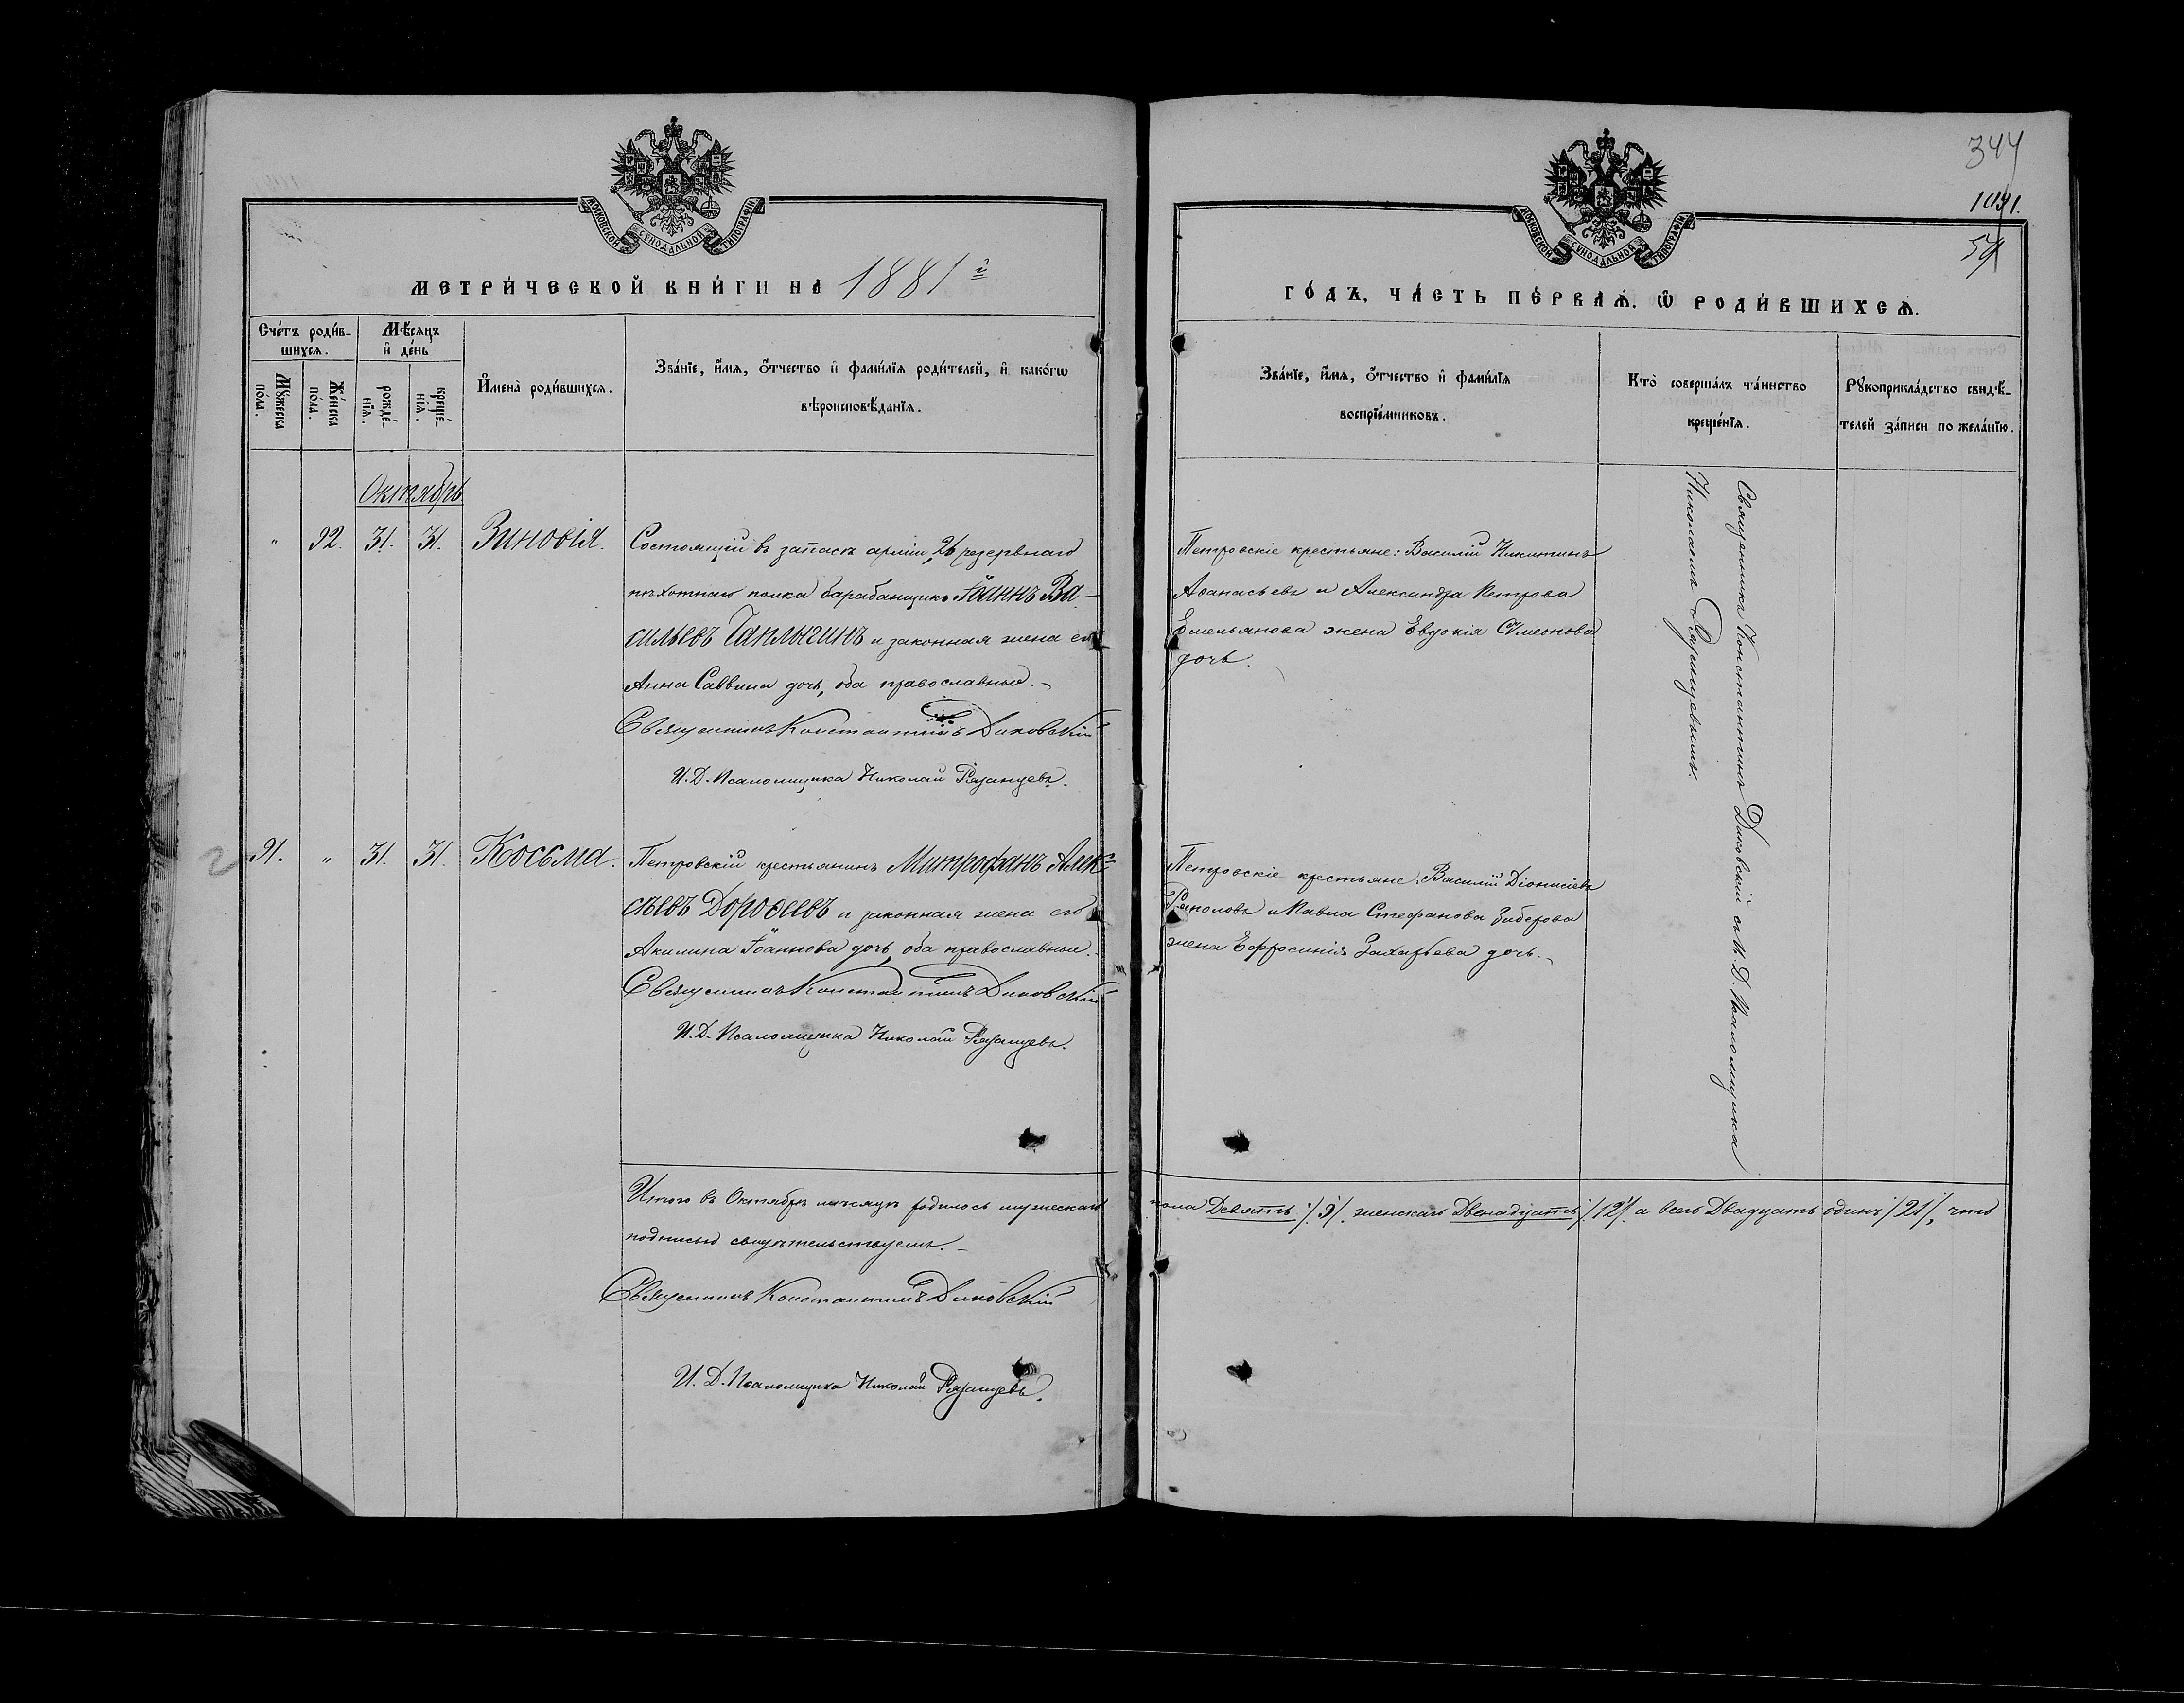 МОСКОВСКОЙ СѴНОДАЛЬНОЙ ТИПОГРАФІИ
МЕТРИ́ЧЕСКОЙ КНИ́ГИ НА 1881 й
Сче́тъ роди́в-
шихся.
Мѣ́сяцъ
и де́нь
Мꙋ́жеска
по́ла.
Же́нска
по́ла.
рожде́-
нїя.
креще́-
нїя.
Имена̀ роди́вшихся.
Зва́нїе, и́мя, о́тчество и фами́лїя роди́телей, и како́гѡ
вѣроисповѣ́данїя.
Октябрь
" 92. 31. 31. Зиновія.
Состоящій въ запасѣ арміи, 26 резервнаго
пѣхотнаго полка барабанщикъ Іоаннъ Ва-
сильевъ Чаплыгинъ и законная жена его
Анна Саввина дочь, оба православные.
Священникъ Константинъ Диковскій
И. Д. Псаломщика Николай Рязанцевъ.
91. " 31. 31. Косьма.
Петровскій крестьянинъ Митрофанъ Алек-
сѣевъ Дороѳеевъ и законная жена его
Акилина Іоаннова дочь, оба православные.
Священникъ Константинъ Диковскій
И. Д. Псаломщика Николай Рязанцевъ.
Итого въ Октябрѣ мѣсяцѣ родилось мужескаго
подписью свидѣтельствуемъ.
Священникъ Константинъ Диковскій
И. Д. Псаломщика Николай Рязанцевъ.
344
54
МОСКОВСКОЙ СѴНОДАЛЬНОЙ ТИПОГРАФІИ
ГО́ДЪ, ЧА́СТЬ ПЕ́РВАЯ. Ѡ РОДИ́ВШИХСЯ.
Зва́нїе, и́мя, о́тчество и фами́лїя
воспрїе́мниковъ.
Кто̀ соверша́лъ та́инство
креще́нїя.
Рꙋкоприкла́дство свидѣ́-
телей за́писи по жела́нїю.
Петровскіе крестьяне: Василій Никитинъ
Аѳанасьевъ и Александра Петрова
Емельянова жена Евдокія Сѵмеонова
дочь.
Священникъ Константинъ Диковскій съ И. Д. Псаломщика
Николаемъ Рязанцевымъ.
Петровскіе крестьяне, Василій Діонисіевъ
и Павла Стефанова
жена Ефросинія Захарьева дочь.
пола Девять /9/. женскаго Двенадцать /12/. а всего Двадцать одинъ /21/, что